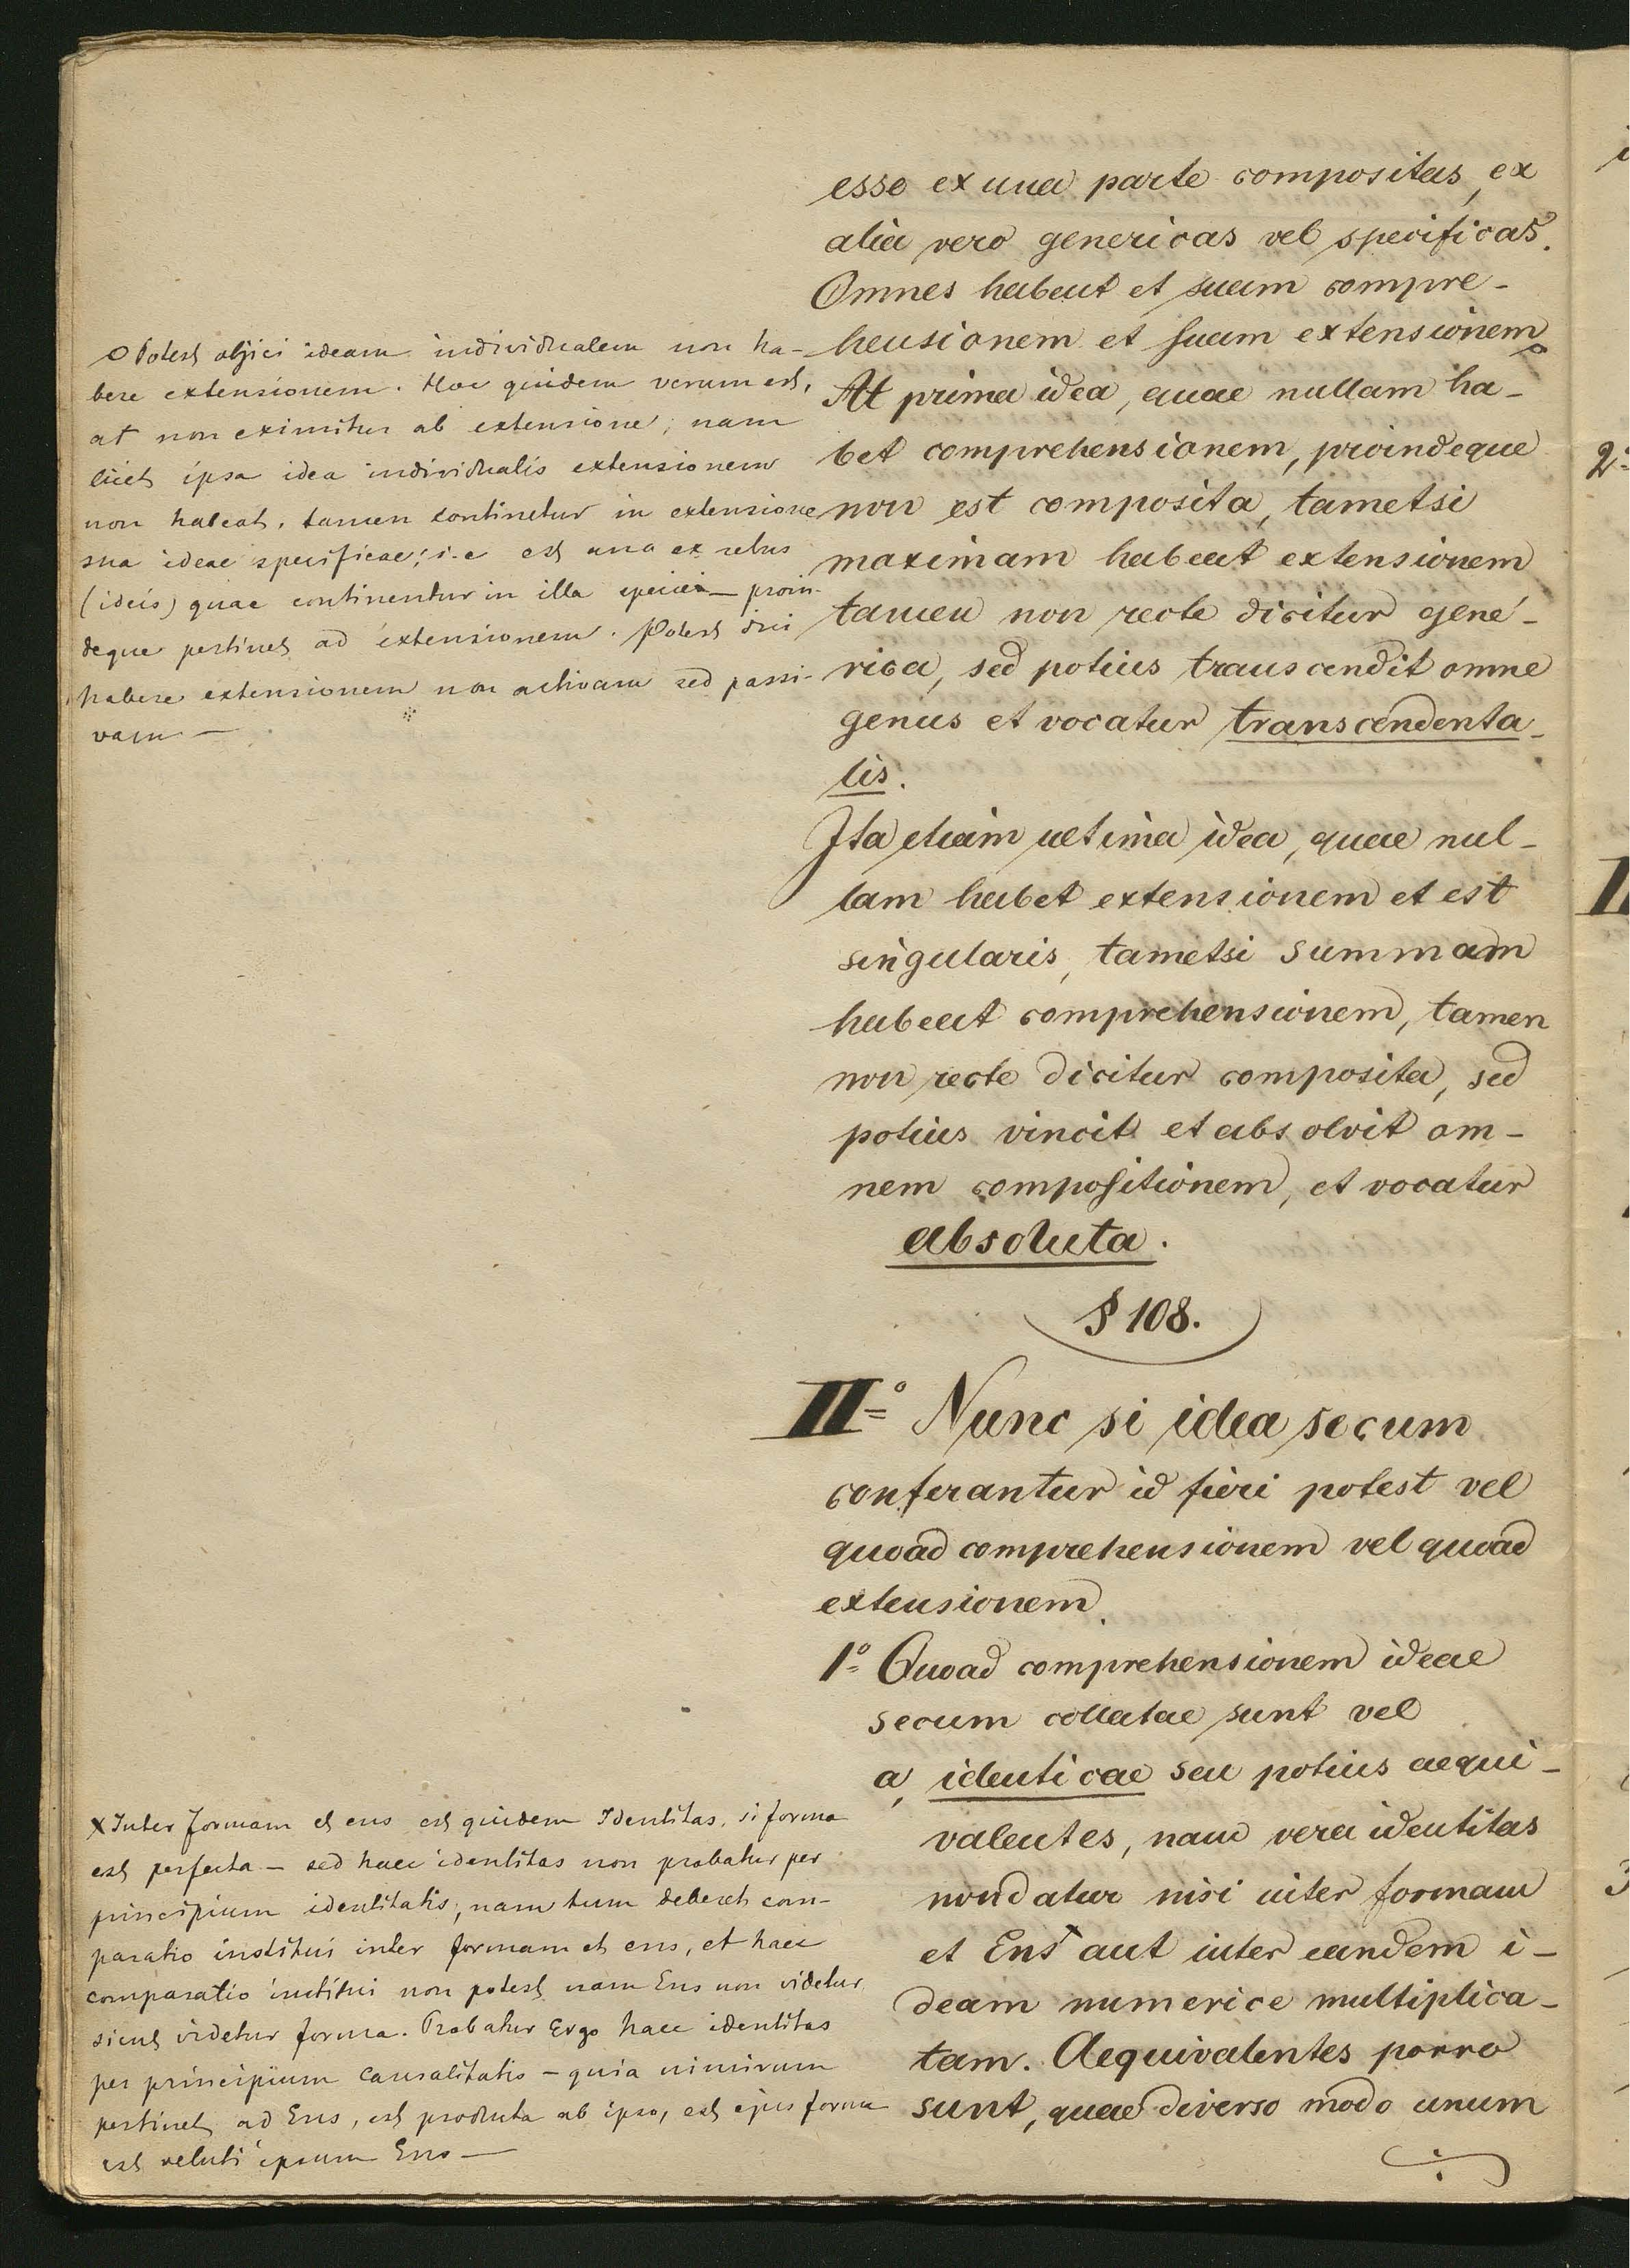 esse ex una parte compositas, ex
alia vero genericas vel specificas.
Omnes habent et suam compre-
hensionem et suam extensionem
At prima idea, quae nullam ha-
bet comprehensionem, proindeque
non est composita, tametsi
maximam habeat extensionem
tamen non recte dicitur gene-
rica, sed potius transcendit omne
genus et vocatur transcendenta-
lis.
Ita etiam ultima idea, quae nul-
lam habet extensionem et est
singularis, tametsi summam
habeat comprehensionem, tamen
non recte dicitur composita, sed
potius vincit et absolvit om-
nem compositionem, et vocatur
absoluta.
§ 108.
II° Nunc si idea secum
conferantur id fieri potest vel
quoad comprehensionem vel quoad
extensionem.
1° Quoad comprehensionem ideae
secum collatae sunt vel
a, identicae seu potius aequi-
valentes, nam vera identitas
non datur nisi inter formam
et Ens x aut inter eandem i-
deam numerice multiplica-
tam. Aequivalentes porro
sunt, quae diverso modo unum
÷
o Potest objici ideam individualem non ha-
bere extensionem. Hoc quidem verum est,
at non eximitur ab extensione, nam
licet ipsa idea individualis extensionem
non habeat, tamen continetur in extensione
sua ideae specificae; i.e est una ex rebus
(ideis) quae continentur in illa specie – proin-
deque pertinet ad extensionem. Potest dici
habere extensionem non activam sed passi-
vam –
x Inter formam et ens est quidem Identitas, si forma
est perfecta – sed haec identitas non probatur per
principium identitatis, nam tum deberet com-
paratio institui inter formam et ens, et haec
comparatio institui non potest nam Ens non videtur
sicut videtur forma. Probatur Ergo haec identitas
per principium Causalitatis – quia nimirum
pertinet ad Ens, est producta ab ipso, est ejus forma
est veluti ipsum Ens –